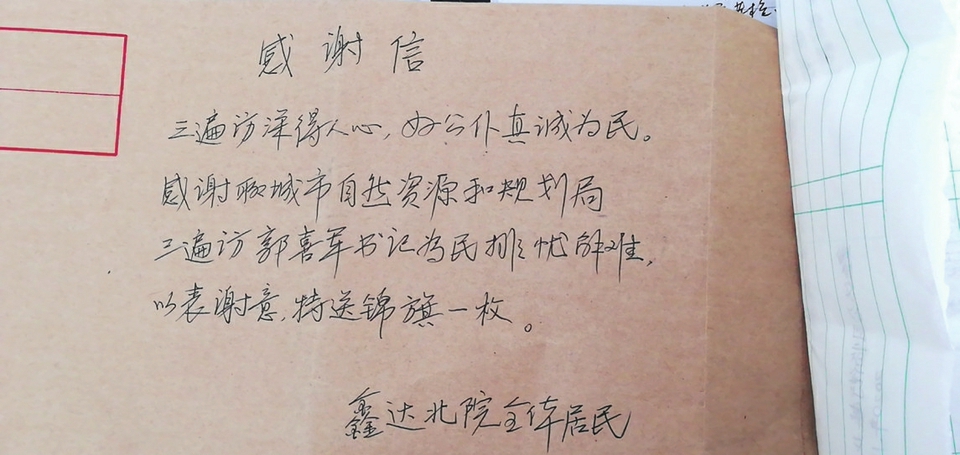 感谢信
三遍访深得人心，好公仆真诚为民。
感谢聊城市自然资源和规划局
三遍访郭喜军书记为民排忧解难，
以表谢意，特送锦旗一枚。
鑫达北院全体居民